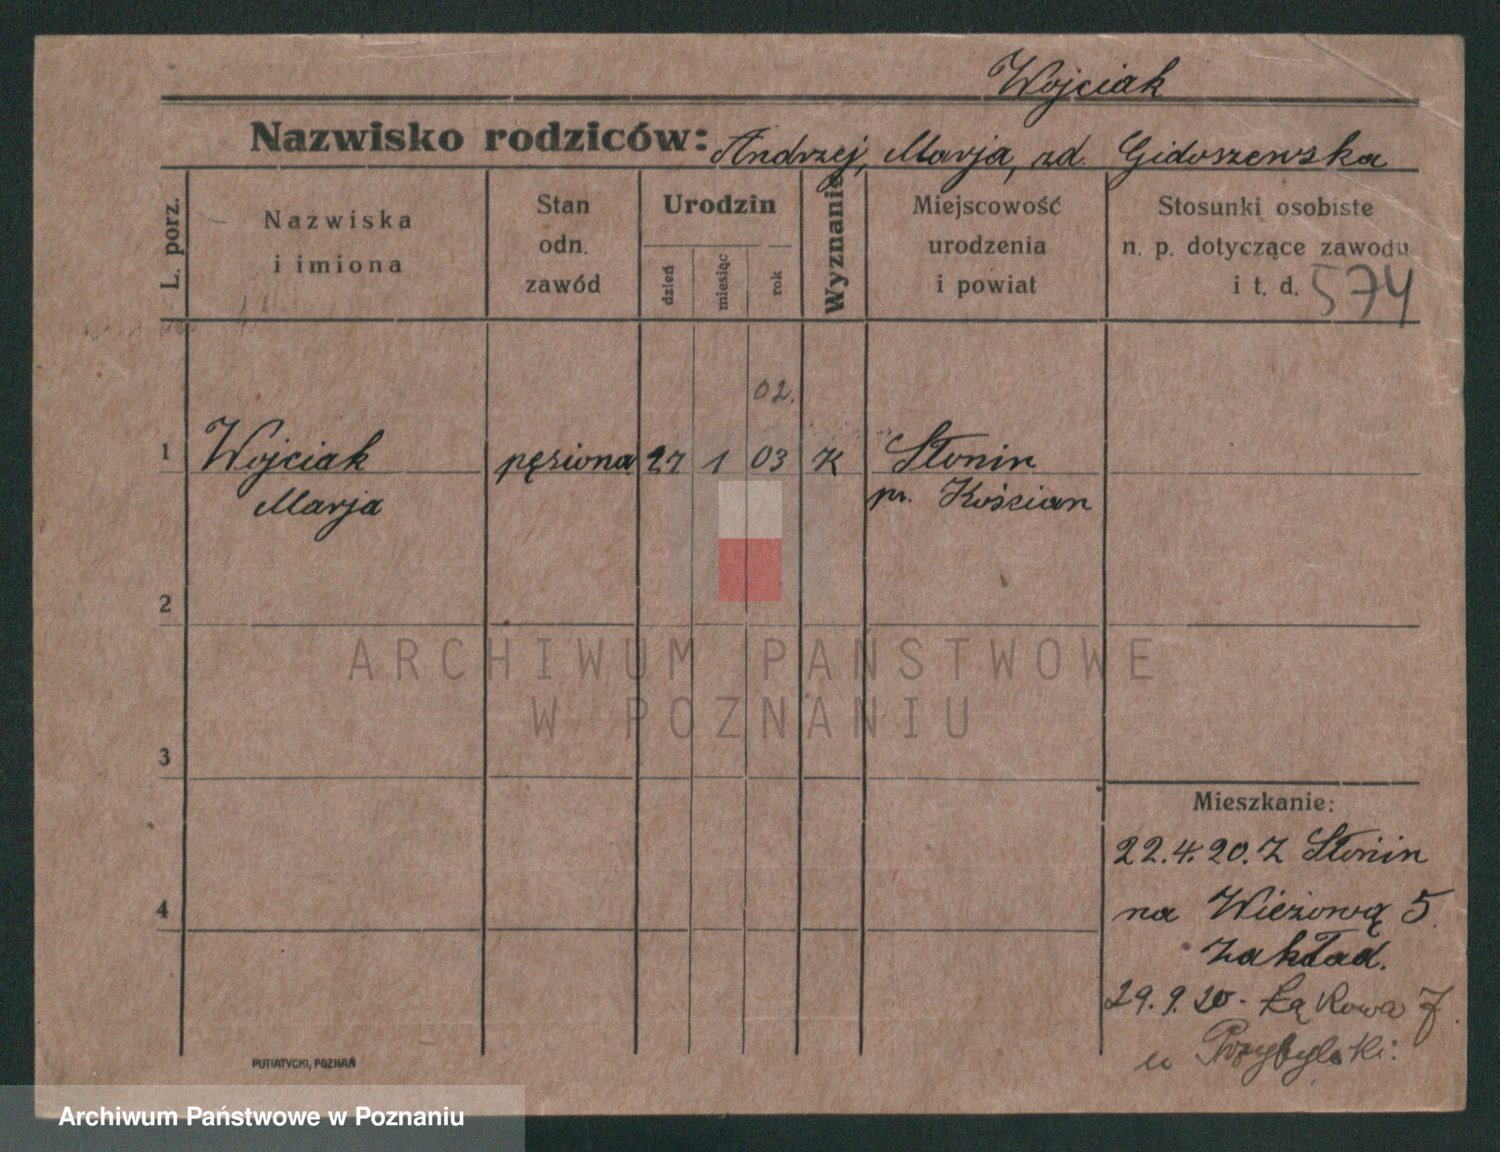 Wojciak
Nazwisko rodziców: Andrzej, Marja, zd. Gidaszewska
L. porz.
Nazwiska
i imiona
Stan
odn.
zawód
Urodzin
dzień
miesiąc
rok
Wyznanie
Miejscowość
urodzenia
i powiat
Stosunki osobiste
n. p. dotyczące zawodu
i t. d. 574
02.
1 Wojciak pęsiona 27 1 03 K Słonin
Marja pr. Kościan
2
ARCHIWUM PAŃSTWOWE
W POZNANIU
3
Mieszkanie:
22.4.20. Z Słonin
4
na Wieżową 5
Zakład.
29.9.20. Łąkowa 7.
u Przybylski.
PUTIATYCKI, POZNAŃ
Archiwum Państwowe w Poznaniu